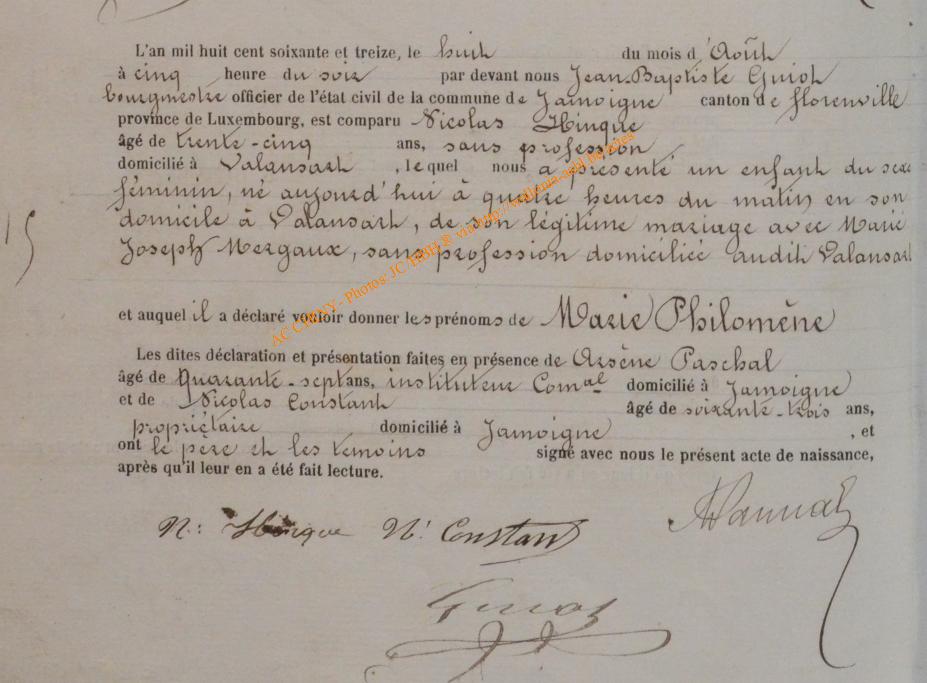 L'an mil huit cent soixante et treize, le huit du mois d'Août
à cinq heure du soir par devant nous Jean-Baptiste Guiot
bourgmestre officier de l'état civil de la commune de Jamoigne canton de florenville
province de Luxembourg, est comparu Nicolas Hinque
âgé de trente-cinq ans, sans profession
domicilié à Valansart, lequel nous a présenté un enfant du sexe
féminin, né aujourd'hui à quatre heures du matin en son
domicile à Valansart, de son légitime mariage avec Marie
Joseph Mergaux, sans profession domiciliée audit Valansart
15
et auquel il a déclaré vouloir donner les prénoms de Marie Philomène
Les dites déclaration et présentation faites en présence de Arsène Paschal
âgé de Quarante-sept ans, instituteur Comal domicilié à Jamoigne
et de Nicolas Constant âgé de soixante-trois ans,
propriétaire domicilié à Jamoigne, et
ont le père et les témoins signé avec nous le présent acte de naissance,
après qu'il leur en a été fait lecture.
N: Hinque N' Constant
Guiot
AC CHINY - Photos: JC